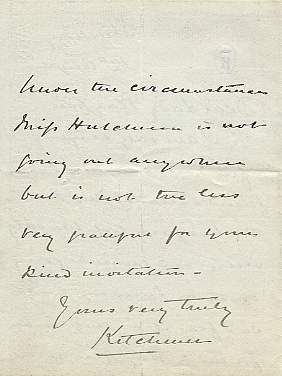 Under the circumstances
Miss Hutchinson is not
going out anywhere
but is not the less
very grateful for your
kind invitation -
Yours very truly
Kitchener